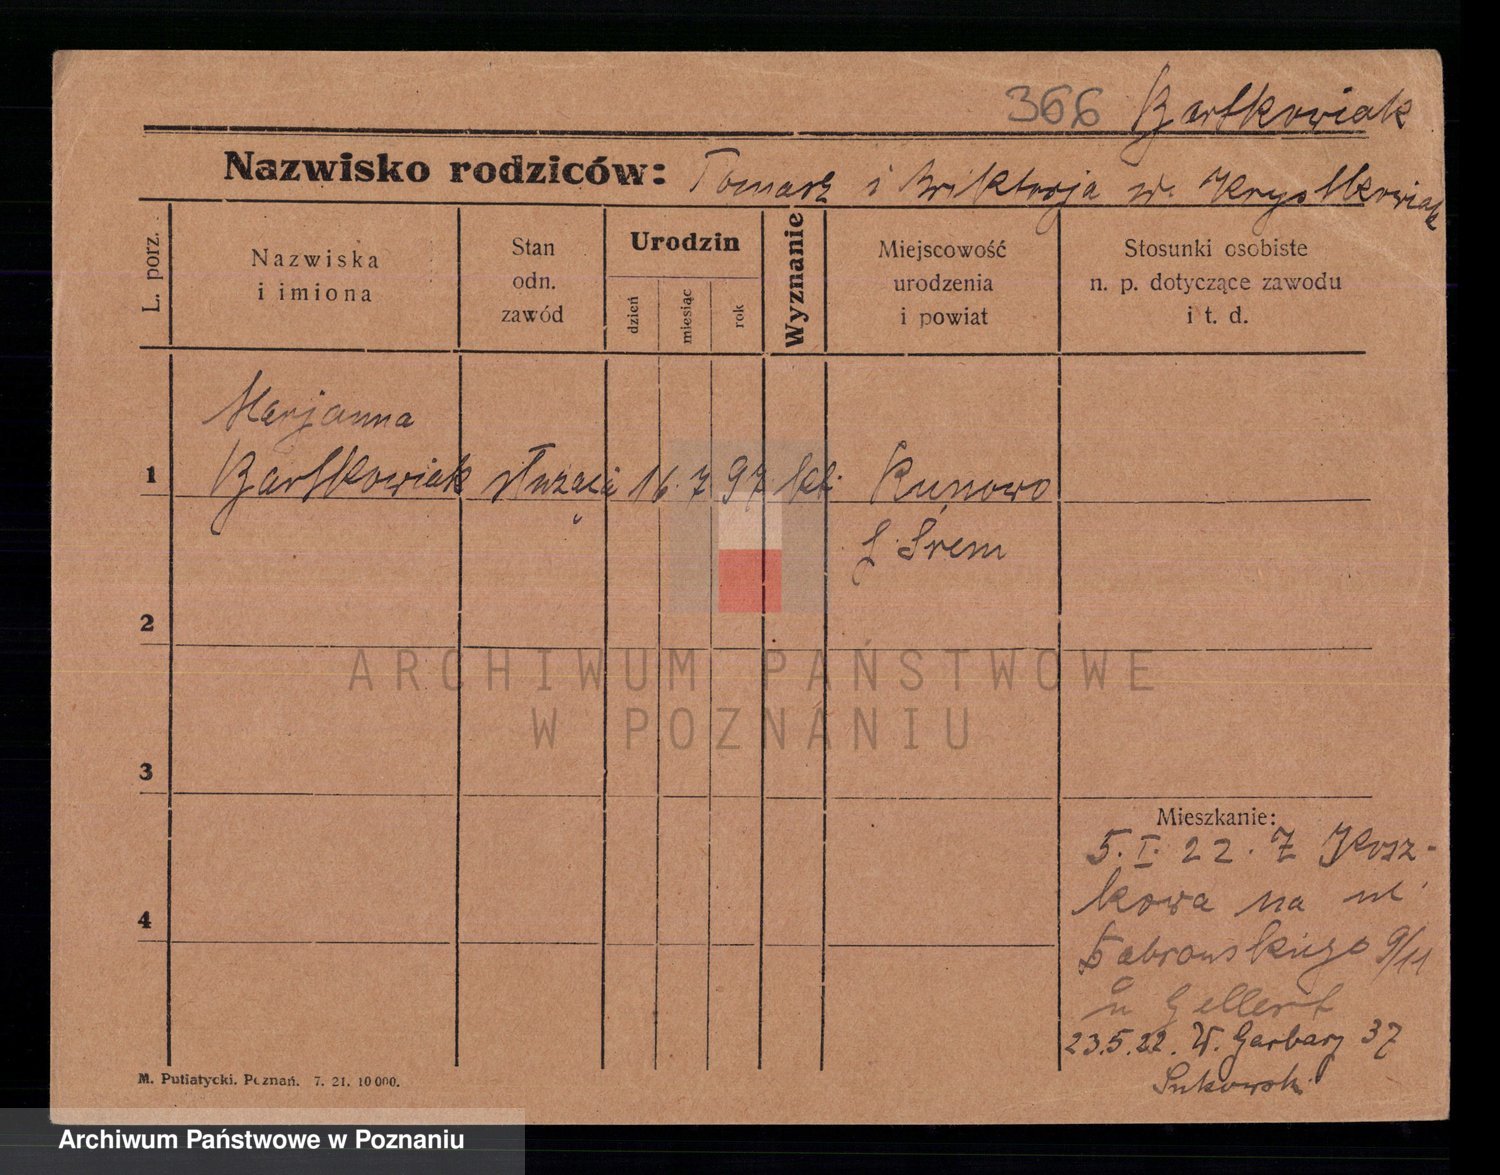 366 Bartkowiak
Nazwisko rodziców: Tomasz i Wiktorja z Krystkowiak
L. porz.
Nazwiska
i imiona
Stan
odn.
zawód
Urodzin
dzień
miesiąc
rok
Wyznanie
Miejscowość
urodzenia
i powiat
Stosunki osobiste
n. p. dotyczące zawodu
i t. d.
Marjanna
1 Bartkowiak służąca 16. 7 97 kt. Kunowo
Śrem
2
ARCHIWUM PAŃSTWOWE
W POZNANIU
3
Mieszkanie:
5. I. 22. Z Kosz-
kowa na ul.
4
Dąbrowskiego 9/11
u Gellert
23.5.22. W. Garbary 37
M. Putiatycki. Poznań. 7. 21. 10 000.
Archiwum Państwowe w Poznaniu